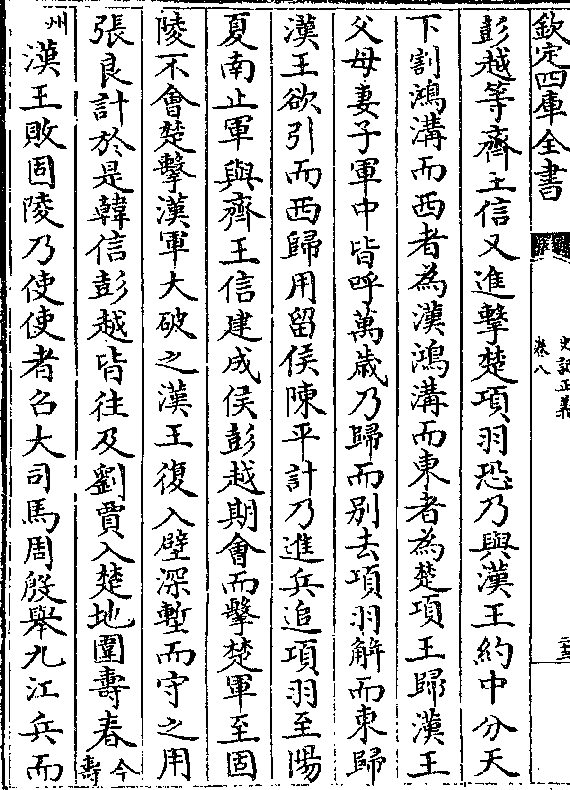 欽定四庫全書
史記正義
卷八
三三
彭越等齊王信又進擊楚項羽恐乃與漢王約中分天
下割鴻溝而西者為漢鴻溝而東者為楚項王歸漢王
父母妻子軍中皆呼萬歲乃歸而别去項羽解而東歸
漢王欲引而西歸用留侯陳平計乃進兵追項羽至陽
夏南止軍與齊王信建成侯彭越期會而擊楚軍至固
陵不會楚擊漢軍大破之漢王復入壁深塹而守之用
張良計於是韓信彭越皆往及劉賈入楚地圍壽春今壽
州漢王敗固陵乃使使者召大司馬周殷舉九江兵而